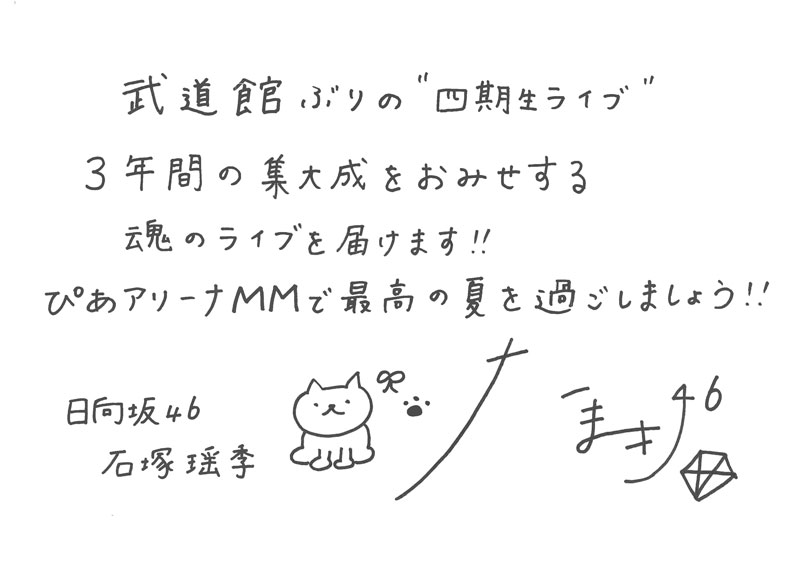 武道館ぶりの"四期生ライブ"
3年間の集大成をおみせする
魂のライブを届けます!!
ぴあアリーナMMで最高の夏を過ごしましょう!!
日向坂46
石塚瑶季
46